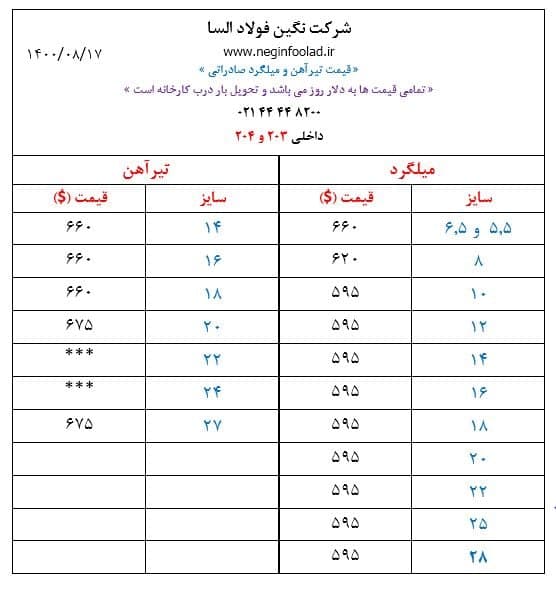 شرکت نگین فولاد السا
www.neginfoolad.ir
۱۴۰۰/۰۸/۱۷
« قیمت تیرآهن و میلگرد صادراتی »
« تمامی قیمت ها به دلار روز می باشد و تحویل بار درب کارخانه است »
۰۲۱ ۴۴ ۴۴ ۸۲۰۰
داخلی ۲۰۳ و ۲۰۴
میلگرد تیرآهن
سایز قیمت ($) سایز قیمت ($)
۵,۵ و ۶,۵ ۶۶۰ ۱۴ ۶۶۰
۸ ۶۲۰ ۱۶ ۶۶۰
۱۰ ۵۹۵ ۱۸ ۶۶۰
۱۲ ۵۹۵ ۲۰ ۶۷۵
۱۴ ۵۹۵ ۲۲ ***
۱۶ ۵۹۵ ۲۴ ***
۱۸ ۵۹۵ ۲۷ ۶۷۵
۲۰ ۵۹۵
۲۲ ۵۹۵
۲۵ ۵۹۵
۲۸ ۵۹۵